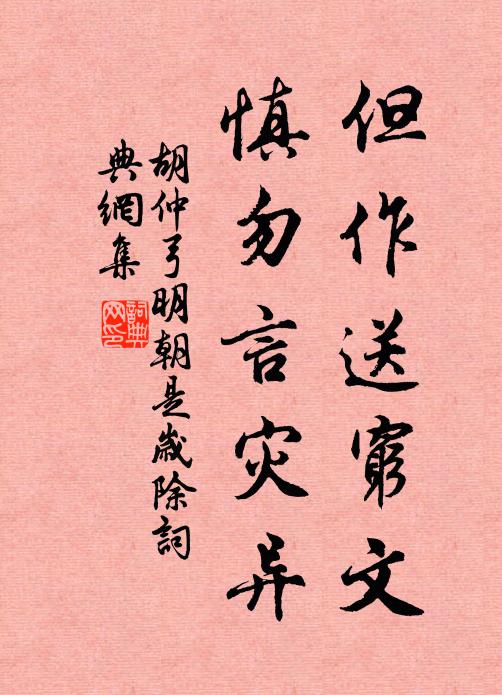 但作送窮文
慎勿言灾异
胡仲弓明朝是歲除詞
典網集
詞典网印